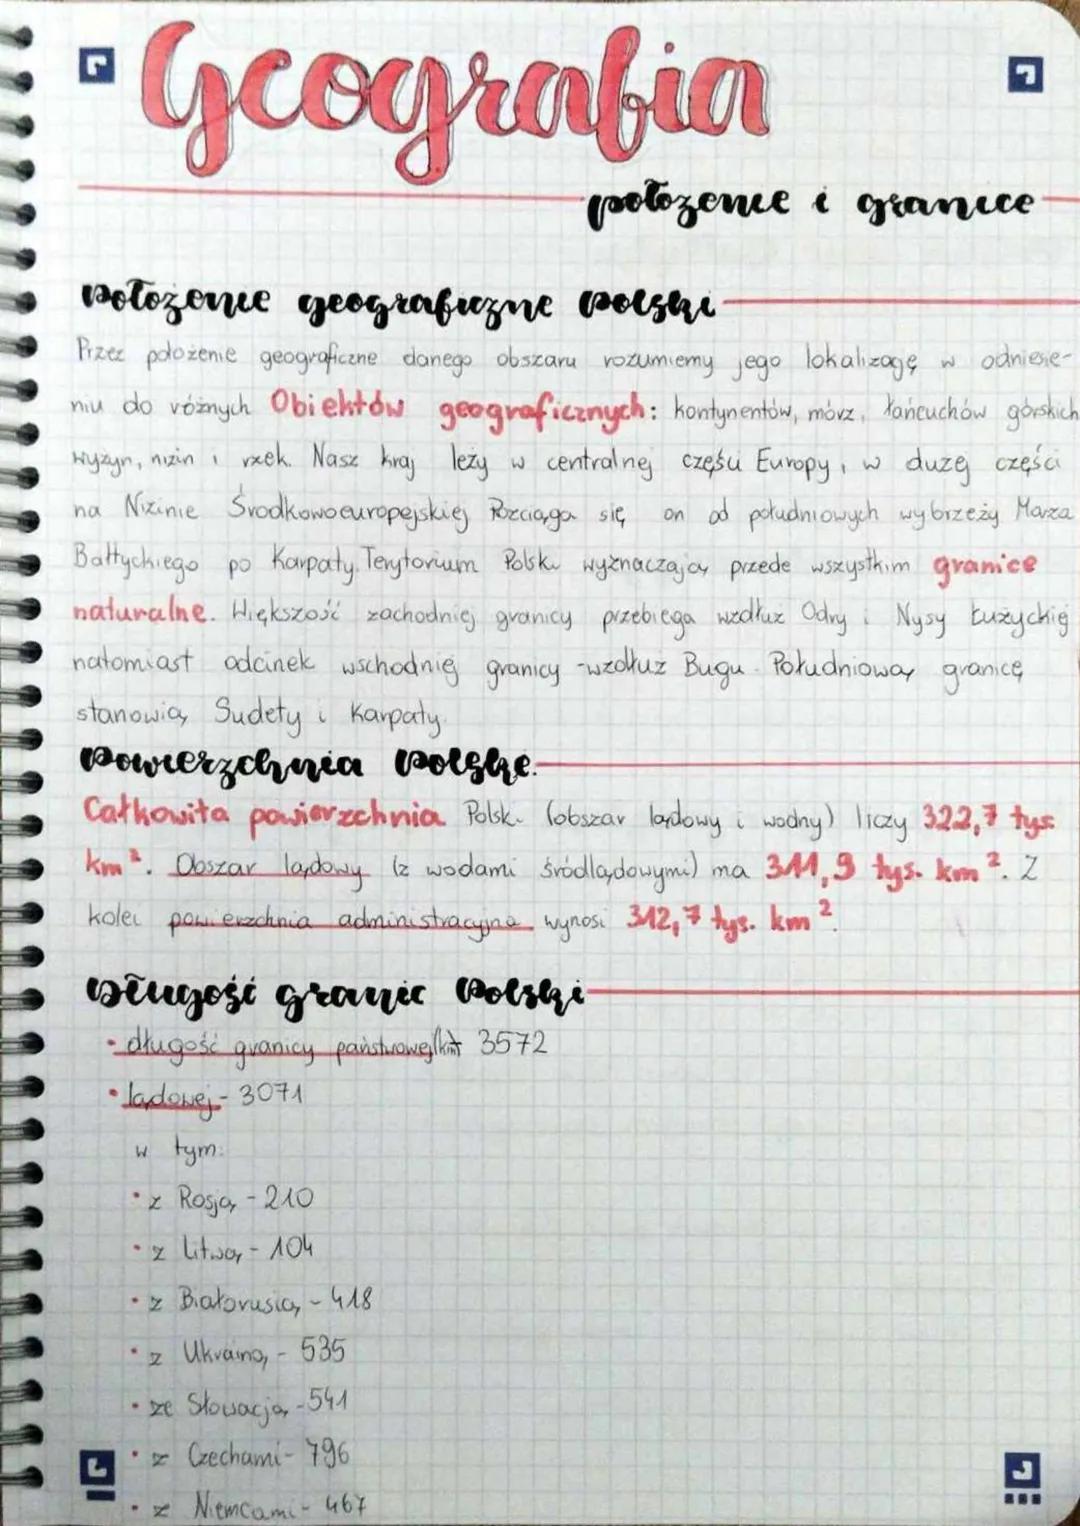 Geografia
położenie i granice
Położenie geograficzne Polski
Przez położenie geograficzne danego obszaru rozumiemy jego lokalizację w odniesie-
niu do różnych Obiektów geograficznych: kontynentów, mórz, łańcuchów górskich
wyżyn, nizin i rzek. Nasz kraj leży w centralnej części Europy, w dużej części
na Nizinie Środkowoeuropejskiej Rozciąga się on od południowych wybrzeży Morza
Bałtyckiego po Karpaty. Terytorium Polski wyznaczają przede wszystkim granice
naturalne. Większość zachodniej granicy przebiega wzdłuż Odry i Nysy Łużyckiej
natomiast odcinek wschodniej granicy - wzdłuż Bugu. Południową granicę
stanowią Sudety i Karpaty.
Powierzchnia Polski.
Całkowita powierzchnia Polski (obszar lądowy i wodny) liczy 322,7 tys
km². Obszar lądowy (z wodami śródlądowymi) ma 311,9 tys. km². Z
kolei powierzchnia administracyjna wynosi 312,7 tys. km².
Długość granic Polski
• długość granicy państwowej(km) 3572
• lądowej - 3071
w tym:
• z Rosją - 210
• z Litwą - 104
• z Białorusią - 418
• z Ukrainą - 535
• ze Słowacją - 541
• z Czechami - 796
• z Niemcami - 467